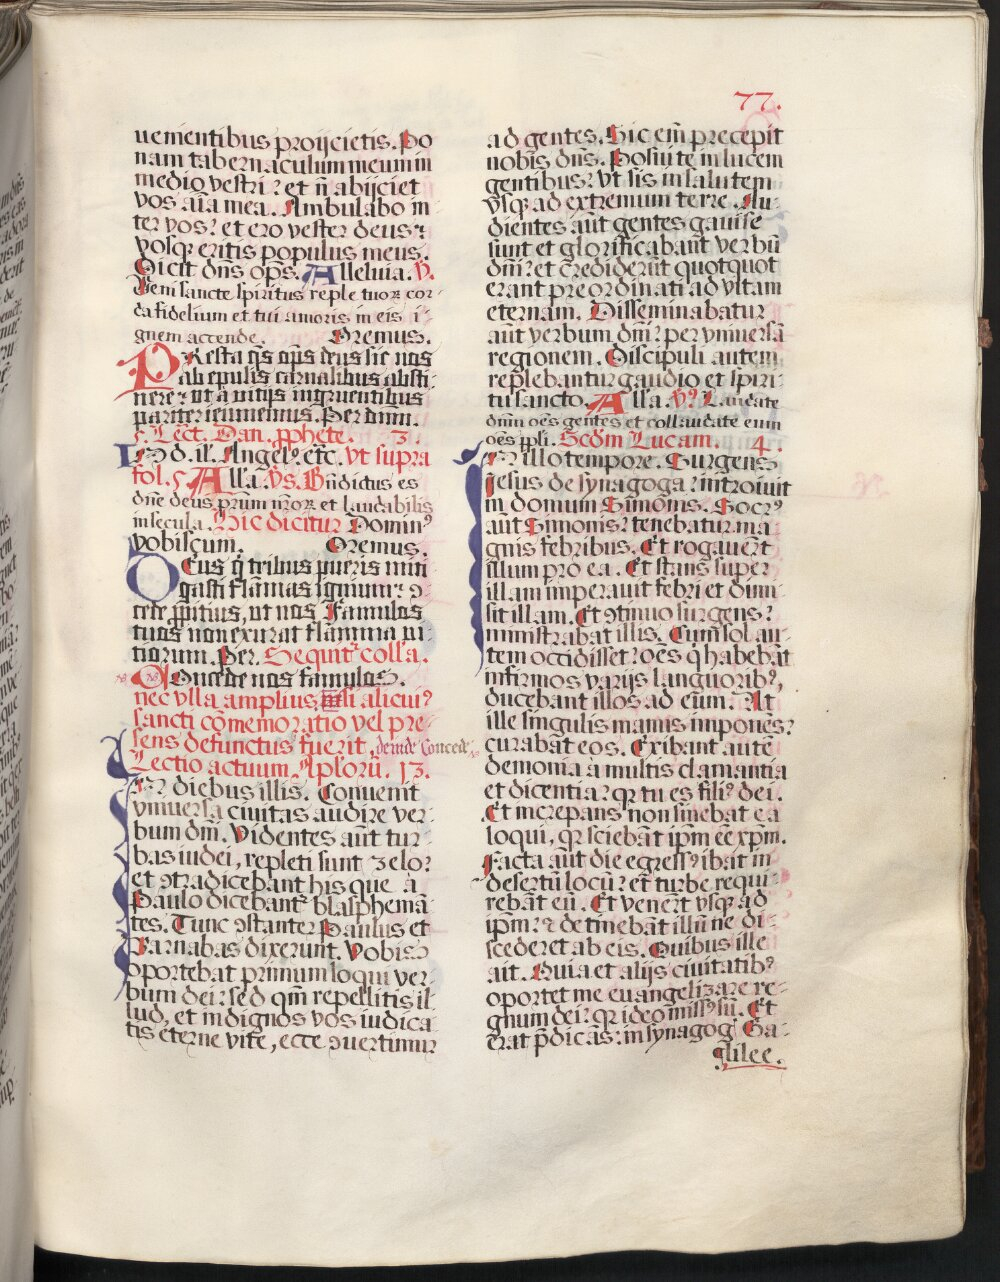 77.
uenientibus proijcietis. Po
nam tabernaculum meum in
medio vestri: et nõ abijciet
vos aĩa mea. Ambulabo in
ter vos: et ero vester deus:
vosqꝫ eritis populus meus.
Dicit dñs oп̃s. Alleluia. V.
Veni sancte spiritus reple tuoꝝ cor
da fidelium et tui amoris in eis i
gnem accende. Oremus.
PResta q̃s oп̃s deus sic nos
ab epulis carnalibus absti
nere: ut a vitijs ingruentibus
pariter ieiunemus. Per dnm̃.
Lect. Dan. ꝓphete. 3.
IN d. il. Angelꝰ. etc. vt supra
fol. 5. Alla. Vs. Bñdictus es
dñe deus prũm nr̃oꝝ et laudabilis
in secula. Hic dicitur Dominꝰ
vobiscum. Oremus.
DEus q̃ tribus pueris miti
gasti flãmas ignium: ꝯ
cede ꝓpitius, ut nos Famulos
tuos non exurat flamma vi
tiorum. Per. Sequint̃ colla.
COncede nos famulos.
nec vlla amplius nisi alicuiꝰ
sancti cõmemoratio vel pre
sens defunctus fuerit, deinde Concede.
Lectio actuum Aplorũ. 13.
IN diebus illis. Conuenit
vniuersa ciuitas audire ver
bum dm̃. Videntes aũt tur
bas iudei, repleti sunt zelo:
et ꝯtradicebant his que a
Paulo dicebant̃ blasphemã
tes. Tunc ꝯstanter Paulus et
Barnabas dixerunt. Vobis
oportebat primum loqui ver
bum dei: sed qm̃ repellitis il
lud, et indignos vos iudica
tis eterne vite, ecce ꝯuertimur
ad gentes. Sic em̃ precepit
nobis dñs. Posui te in lucem
gentibus: vt sis in salutem
vsqꝫ ad extremum terre. Au
dientes aũt gentes gauise
sunt et glorificabant verbũ
dm̃: et crediderũt quotquot
erant preordinati ad vitam
eternam. Disseminabatur
aũt verbum dm̃: per vniuersã
regionem. Discipuli autem
replebantur gaudio et spiri
tu sancto. Alla. Vꝰ. Laudate
dñm oẽs gentes et collaudate eum
oẽs ppli. Scd̃m Lucam. 4.
IN illo tempore. Surgens
Jesus de synagoga: introiuit
in domum Simonis. Socrꝰ
aũt Simonis: tenebatur ma
gnis febribus. Et rogauert̃
illum pro ea. Et stans super
illam imperauit febri et dimi
sit illam. Et ꝯtinuo surgens:
ministrabat illis. Cum sol au
tem occidisset: oẽs q̃ habebãt
infirmos varijs languoribꝰ,
ducebant illos ad eum. At
ille singulis manus imponẽs:
curabat eos. Exibant autẽ
demonia a multis clamantia
et dicentia: qꝛ tu es filiꝰ dei.
Et increpans non sinebat ea
loqui, qꝛ sciebãt ipm̃ eẽ xpm̃.
Facta aũt die egressꝰ ibat in
desertũ locũ: et turbe requi
rebãt eũ. Et venert̃ vsqꝫ ad
ipm̃: & detinebãt illũ ne di
scederet ab eis. Quibus ille
ait. Quia et alijs ciuitatibꝰ
oportet me euangelizare re
gnum dei: qꝛ ideo missꝰ sũ. Et
erat p̃dicãs: in synagog̃ Ga
lilee.